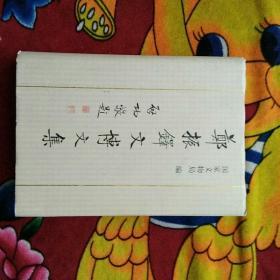 鄭振鐸文博文集
国家文物局 编